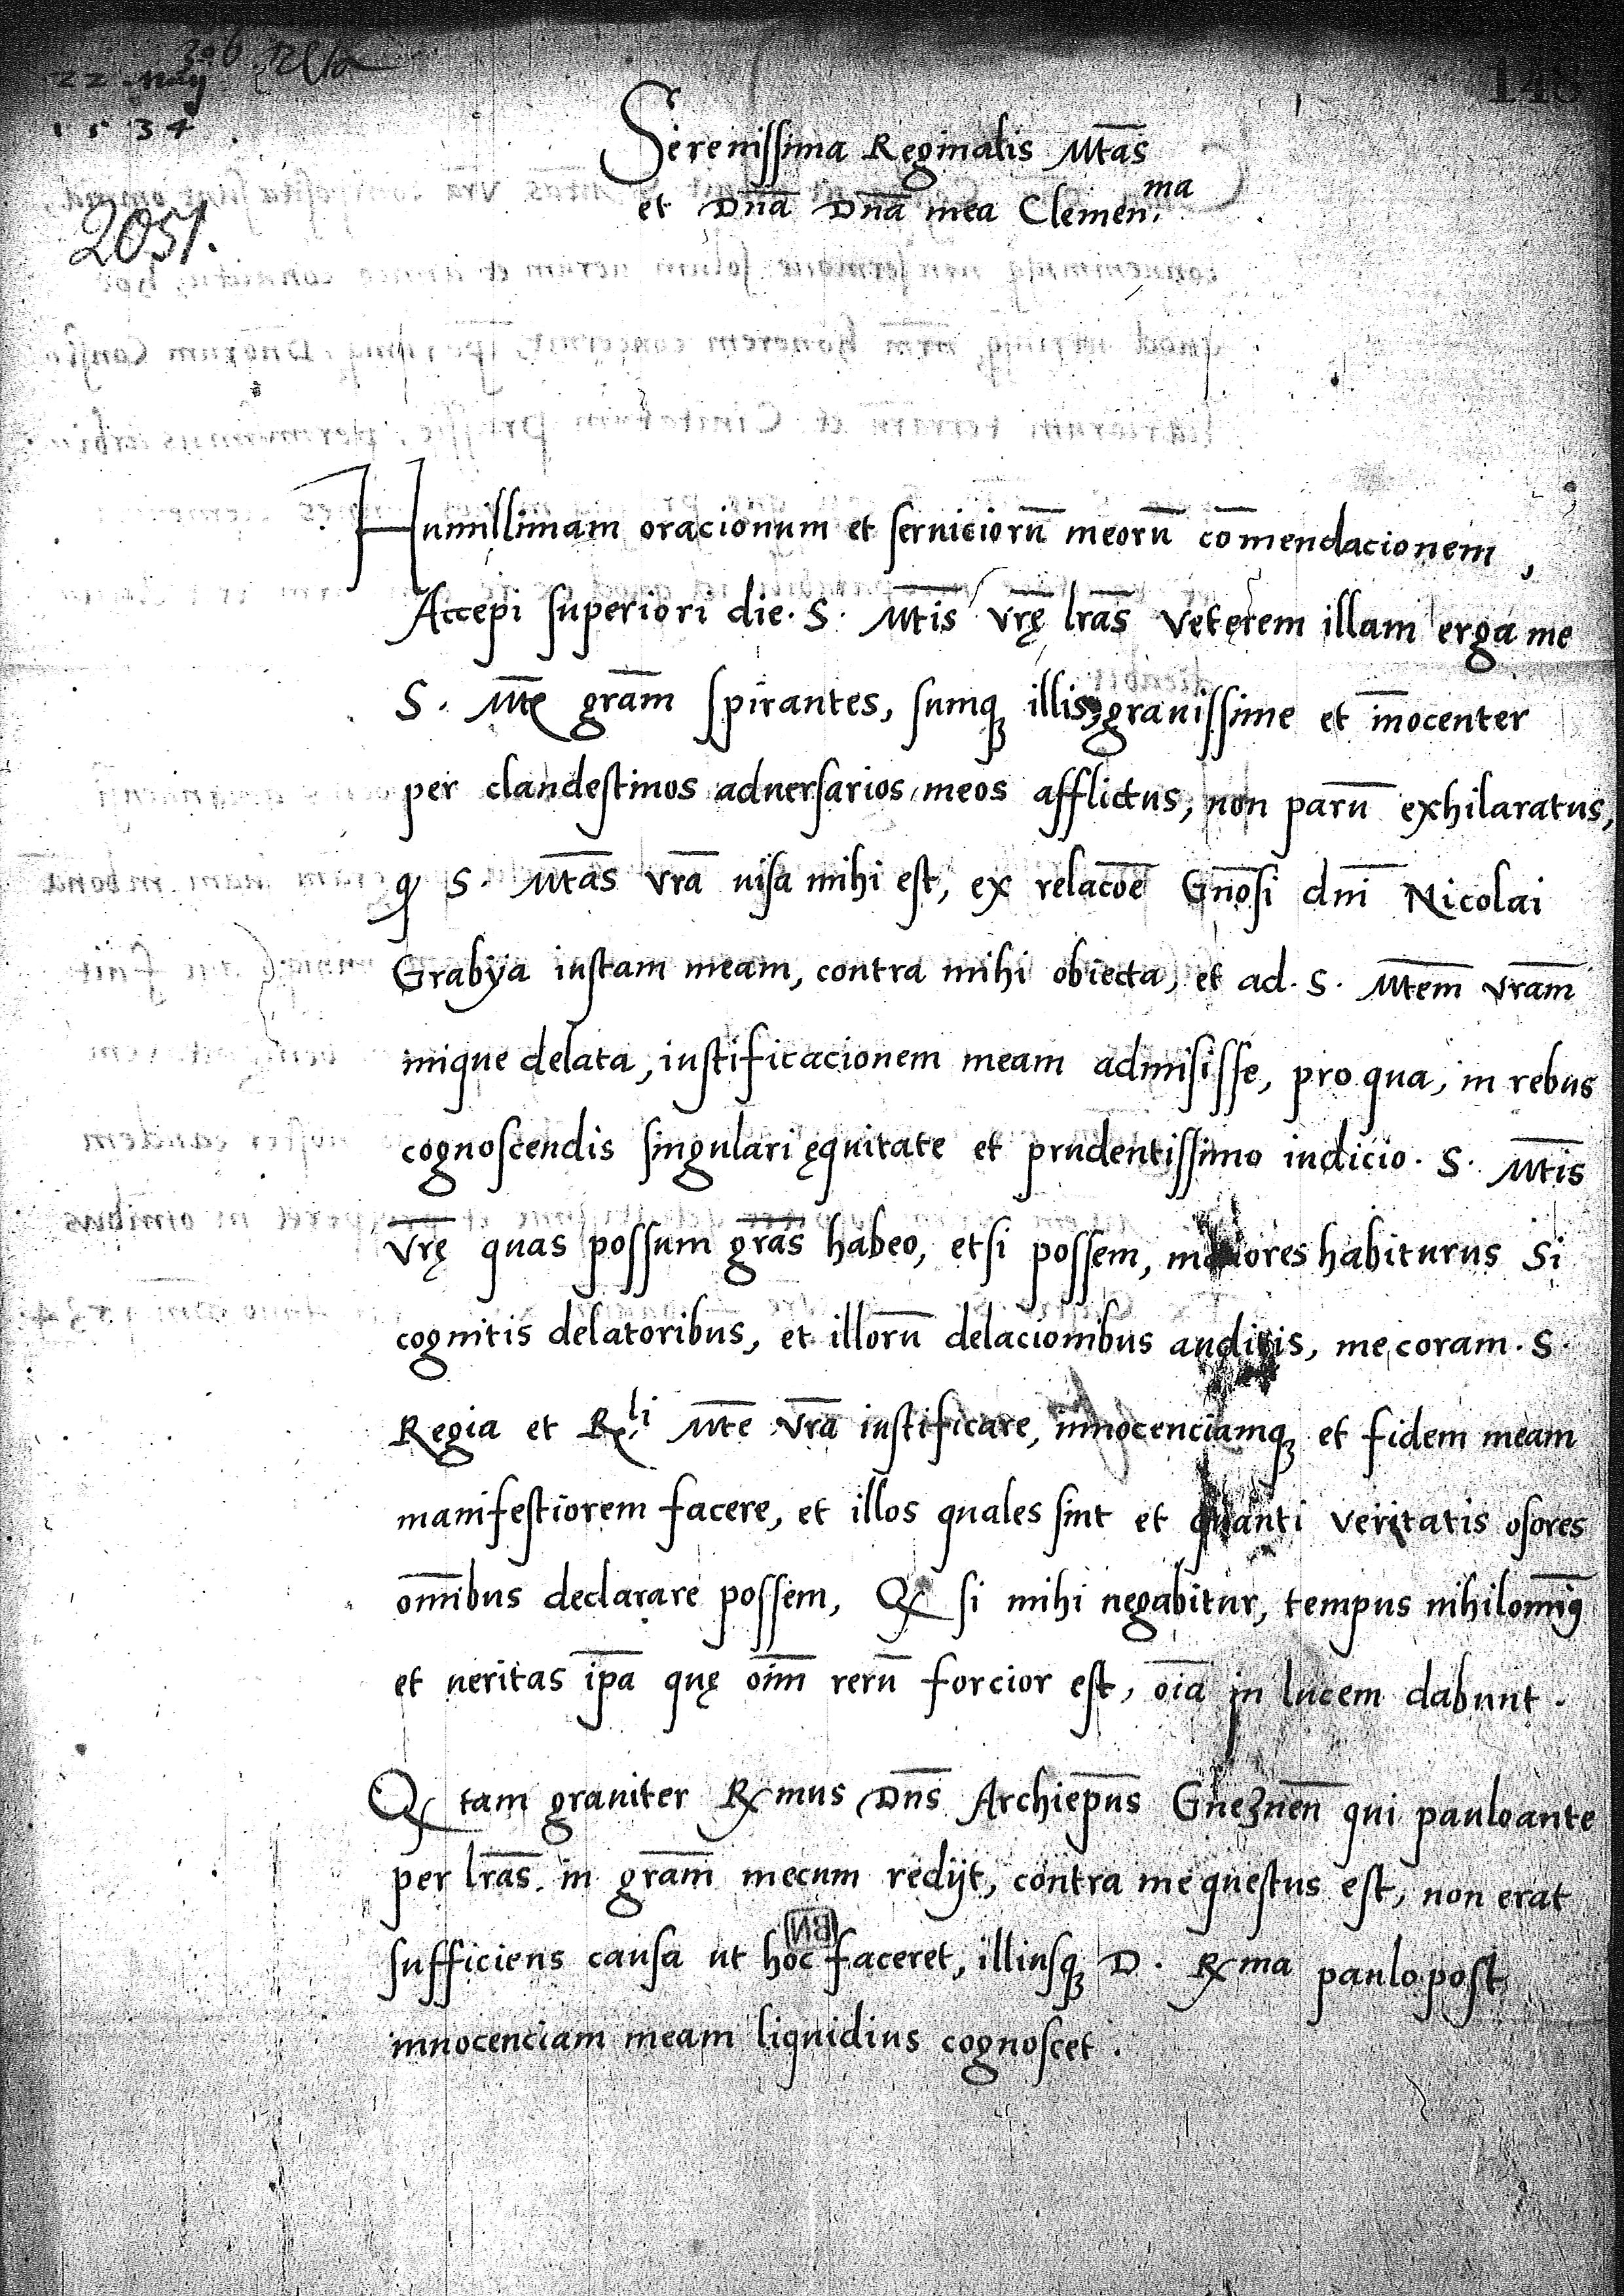 22 May
1534
148
2051.
Serenissima Reginalis Mtãs
et Dnã Dnã mea Clemen.ma
Humillimam oracionum et seruiciorũ meorũ cõmendacionem,
Accepi superiori die. S. Mtis vrę lrãs veterem illam erga me
S. Mtę gram̃ spirantes, sumq̃ illis, grauissime et inõcenter
per clandestinos aduersarios meos afflictus, non parũ exhilaratus,
ꝙ S. Mtãs vrã uisa mihi est, ex relacõe Gnõsi dnĩ Nicolai
Grabya iustam meam, contra mihi obiecta, et ad. S. Mtem̃ vram̃
inique delata, iustificacionem meam admisisse, pro qua, in rebus
cognoscendis singulari ęquitate et prudentissimo iudicio. S. Mtis
vrę quas possum grãs habeo, etsi possem, maiores habiturus Si
cognitis delatoribus, et illorũ delacionibus auditis, me coram. S.
Regia et R.li Mtẽ vrã iustificare, innocenciamq̃ et fidem meam
manifestiorem facere, et illos quales sint et quanti veritatis osores
om̃ibus declarare possem, Qꝫ si mihi negabitur, tempus nihilomi9
et ueritas ipã quę oim̃ rerũ forcior est, oĩa in lucem dabunt.
Qꝫ tam grauiter Rx̃mus Dns̃ Archiepũs Gneznen̄ qui pauloante
per lrãs in gram̃ mecum redijt, contra me questus est, non erat
sufficiens causa ut hoc faceret, illiusq̃ D. Rx̃ma paulopost
innocenciam meam liquidius cognoscet.
BN